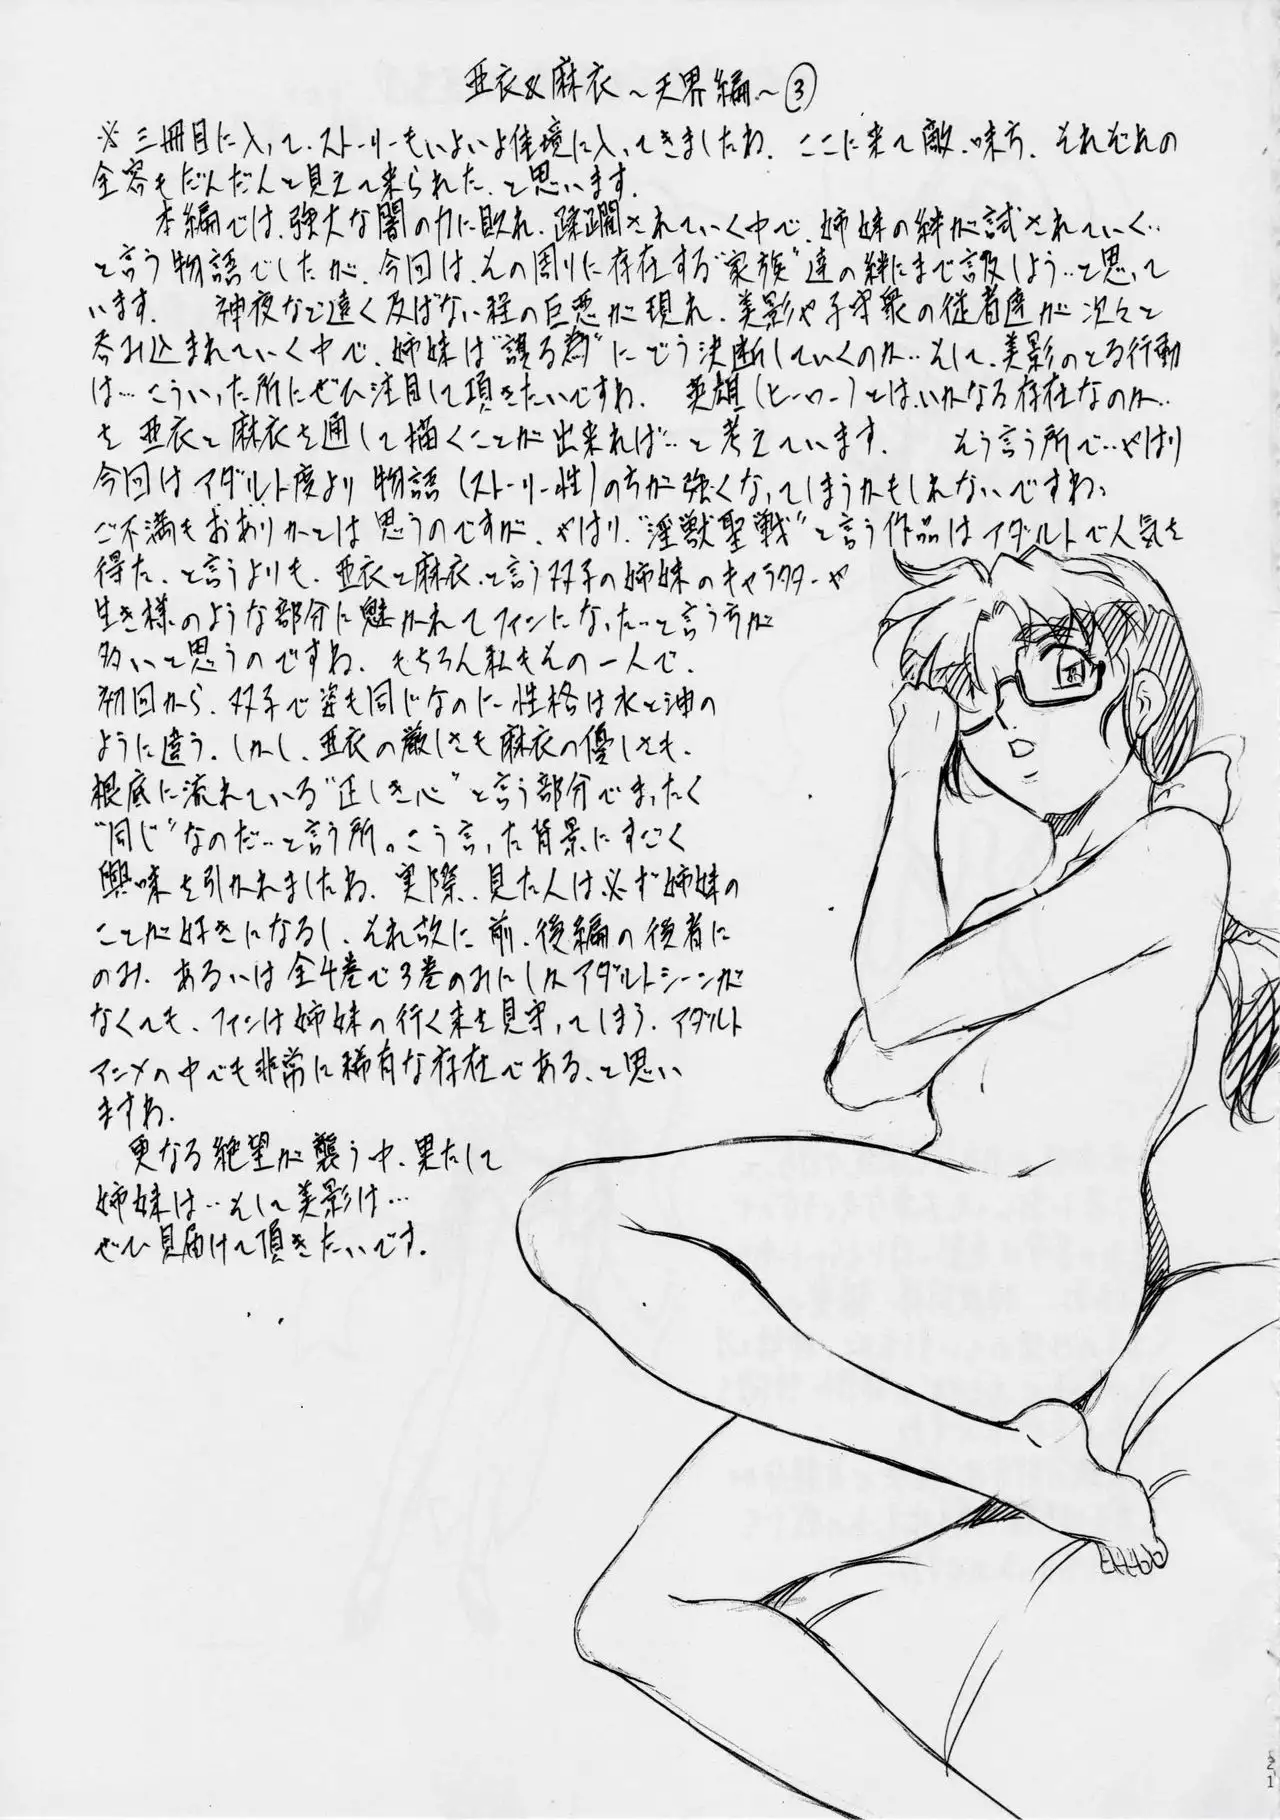 亜衣&麻衣～天界編～③
※三冊目に入って、ストーリーもいよいよ佳境に入ってきましたね。ここに来て敵、味方、それぞれの
全容もだんだんと見えて来られた、と思います。
本編では、強大な闇の力に敗れ、蹂躙されていく中で、姉妹の絆が試されていく…
と言う物語でしたが、今回は、その周りに存在する“家族”達の絆にまで言及しよう…と思って
います。 神夜など遠く及ばない程の巨悪が現れ、美影や子守衆の従者達が次々と
呑み込まれていく中で、姉妹は“護る為”にどう決断していくのか…そして、美影のとる行動
は…こういった所にぜひ注目して頂きたいですね。 英雄(ヒーロー)とは、いかなる存在なのか…
を亜衣と麻衣を通して描くことが出来れば…と考えています。 そう言う所で…やはり
今回はアダルト度より物語(ストーリー性)の方が強くなってしまうかもしれないですね。
ご不満もおありかとは思うのですが、やはり、“淫獣聖戦”と言う作品はアダルトで人気を
得た、と言うよりも、亜衣と麻衣、と言う双子の姉妹のキャラクターや
生き様のような部分に魅かれてファンになった…と言う方が
多いと思うのですね。もちろん私もその一人で、
初回から、双子で姿も同じなのに性格は水と油の
ように違う。しかし、亜衣の厳しさも麻衣の優しさも、
根底に流れている“正しき心”と言う部分でまったく
“同じ”なのだ…と言う所。こう言った背景にすごく
興味を引かれましたね。実際、見た人は必ず姉妹の
ことが好きになるし、それ故に前、後編の後者に
のみ、あるいは全4巻で3巻のみにしかアダルトシーンが
なくても、ファンは姉妹の行く末を見守ってしまう、アダルト
アニメの中でも非常に稀有な存在である、と思い
ますね。
更なる絶望が襲う中、果たして
姉妹は…そして美影は…
ぜひ見届けて頂きたいです。
21